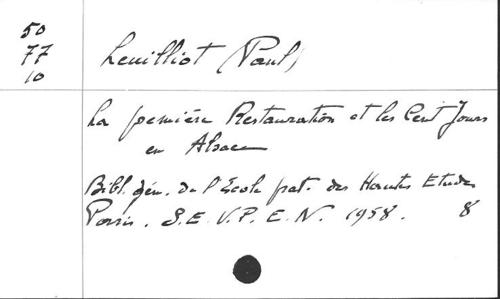 50
77
10
Leuilliot (Paul)
La première Restauration et les Cent Jours
en Alsace
Bibl. gén. de l'Ecole prat. des Hautes Etudes
Paris. S.E.V.P.E.N. 1958. 8